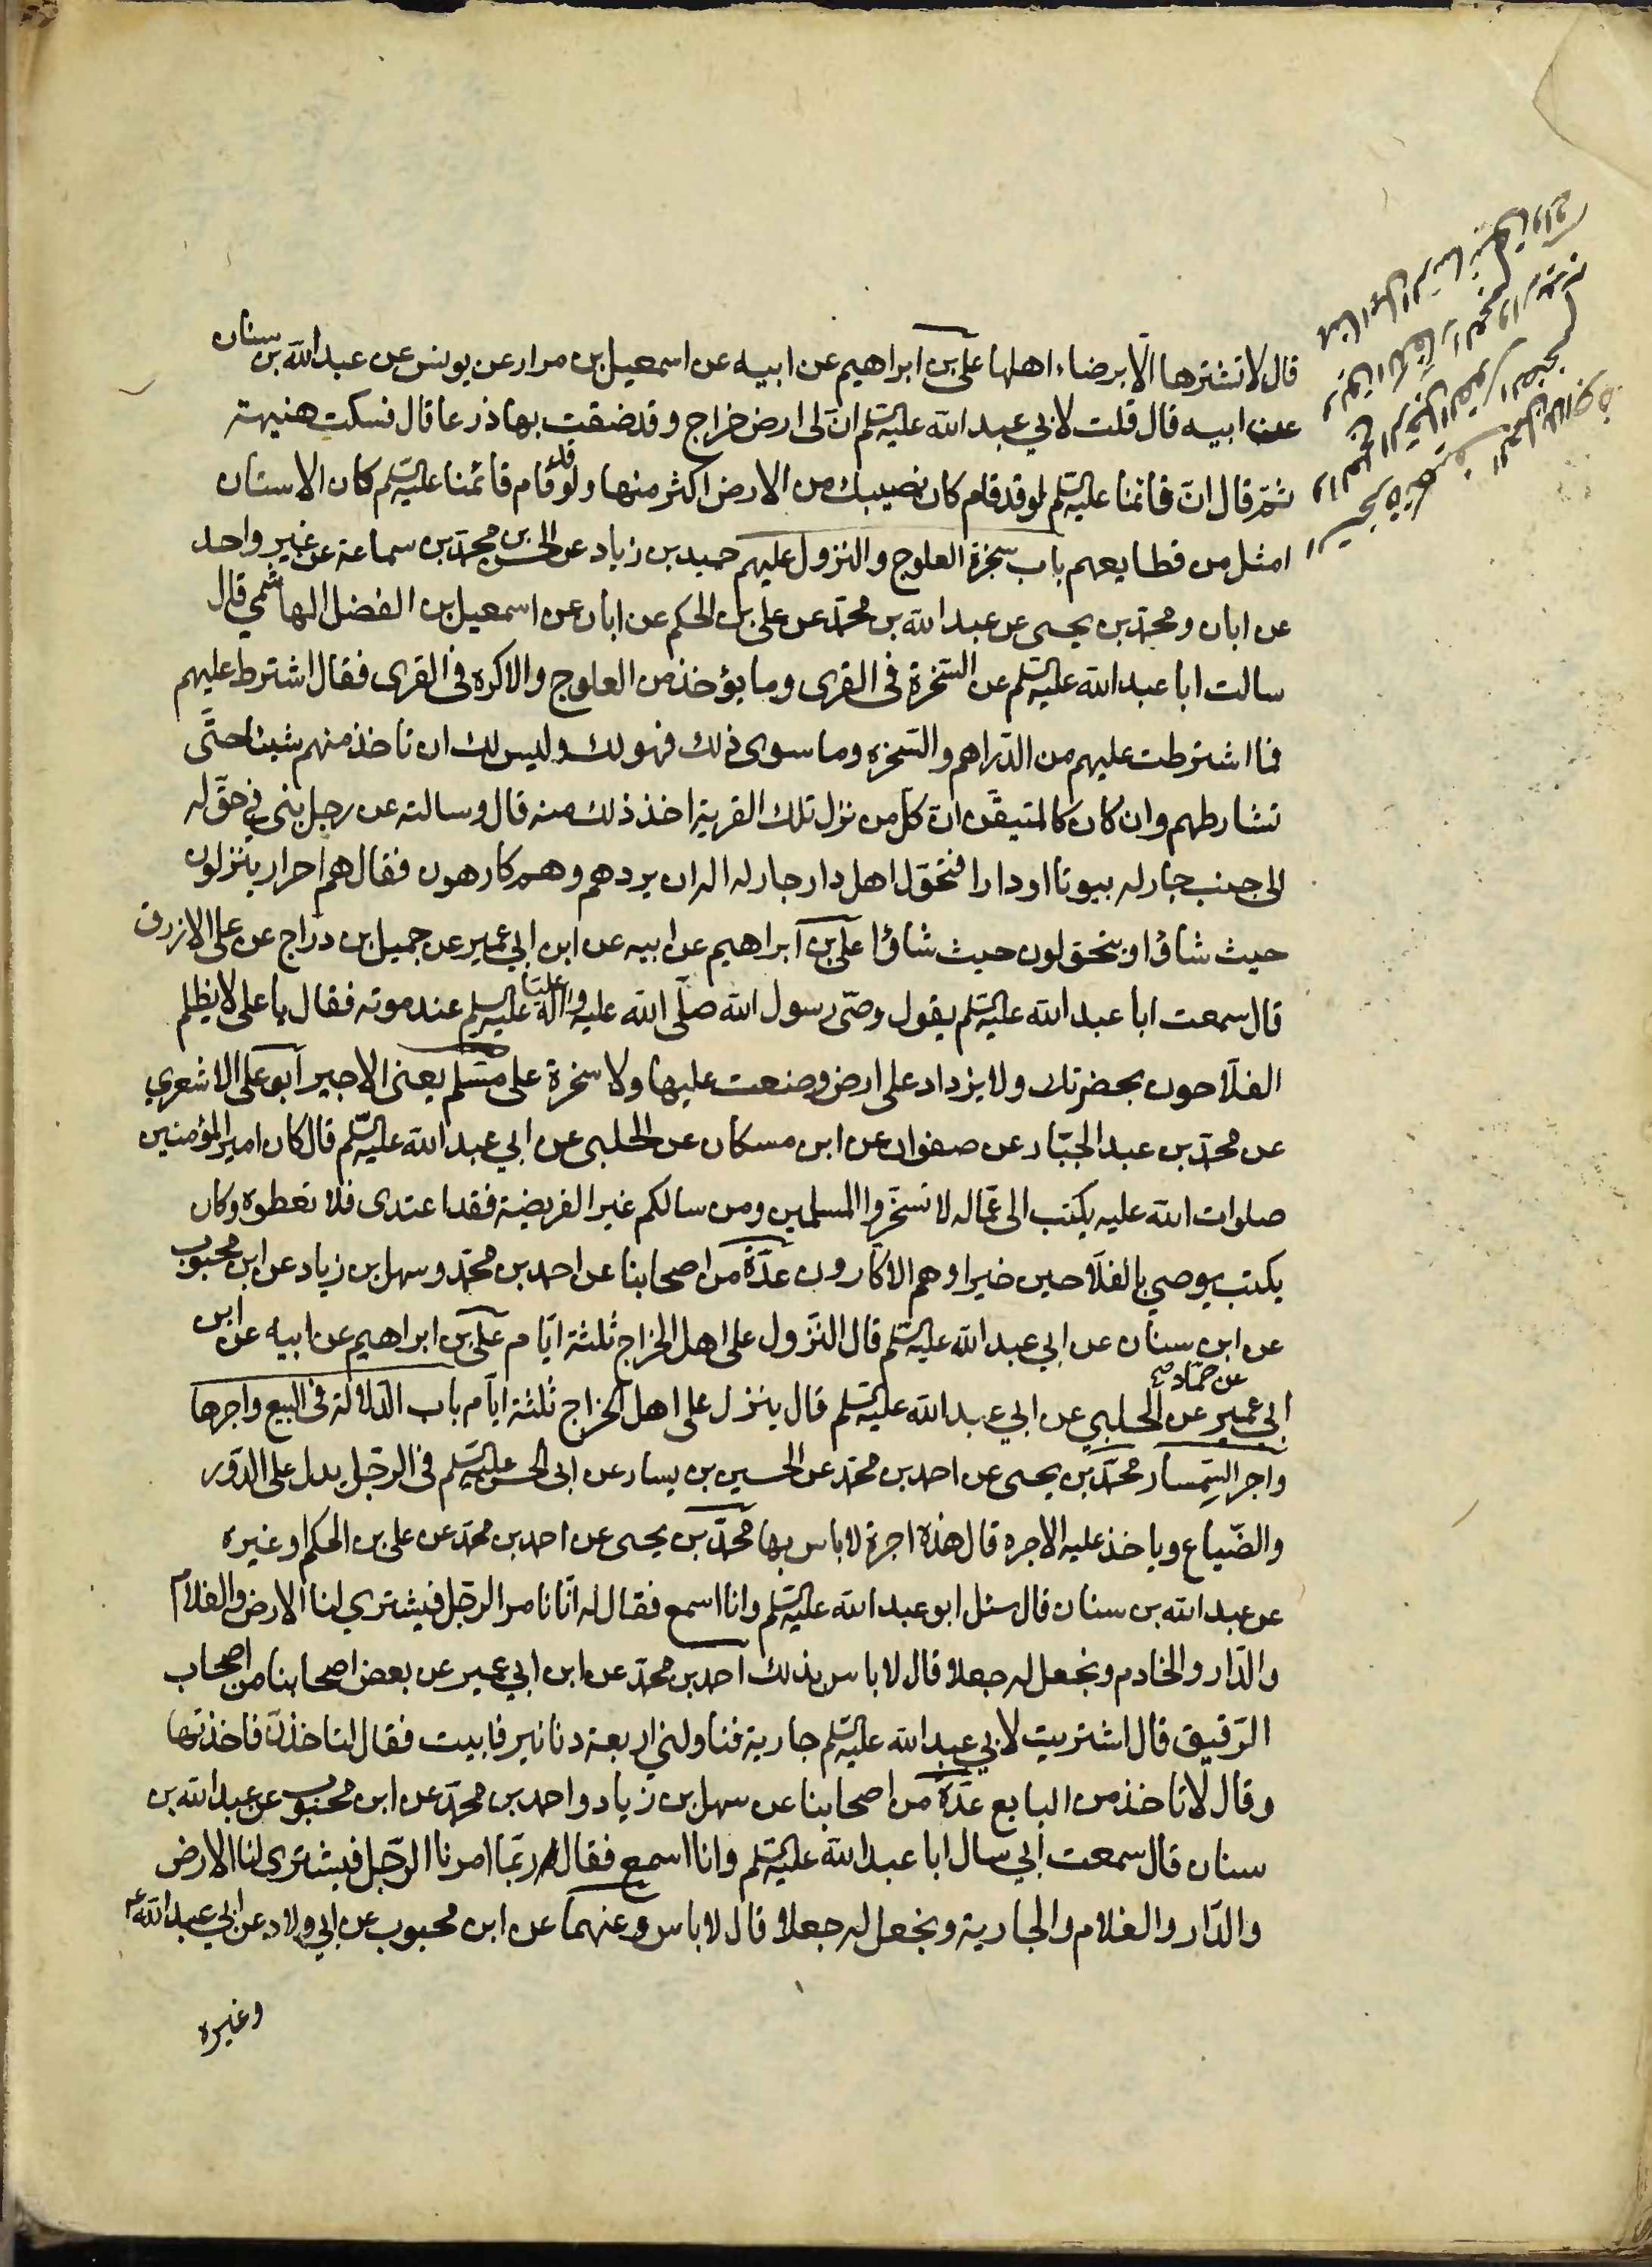 قال لا تشترها الّا برضاء اهلها علي بن ابراهيم عن ابيه عن اسمعيل بن مرار عن يونس عن عبد الله بن سنان
عن ابيه قال قلت لابي عبد الله عليه السّلم انّ لى ارض خراج وقد ضقت بها ذرعا قال فسكت هنيهة
ثمّ قال انّ قائمنا عليه السّلم لو قد قام كان نصيبك من الارض اكثر منها ولو قد قام قائمنا عليه السّلم كان الاستان
امثل من قطايعهم باب سخرة العلوج والنزول عليهم حميد بن زياد عن الحسن بن محمّد بن سماعة عن غير واحد
عن ابان ومحمّد بن يحيى عن عبد الله بن محمّد عن على بن الحكم عن ابان عن اسمعيل بن الفضل الهاشمي قال
سالت ابا عبد الله عليه السّلم عن السّخرة فى القرى وما يؤخذ من العلوج والاكره فى القرى فقال اشترط عليهم
فما اشترطت عليهم من الدّراهم والسّخره وما سوى ذلك فهو لك وليس لك ان تاخذ منهم شيئا حتّى
تشارطهم وان كان كالمتيقّن انّ كلّ من نزل تلك القرية اخذ ذلك منه قال وسالته عن رجل بنى في حقّ له
الى جنب جار له بيوتا او دارا فتحوّل اهل دار جار له اله ان يردهم وهم كارهون فقال هم احرار ينزلون
حيث شاؤا ويتحوّلون حيث شاؤا علي بن ابراهيم عن ابيه عن ابن ابي عمير عن جميل بن دراج عن على الازرق
قال سمعت ابا عبد الله عليه السّلم يقول وصّى رسول الله صلّى الله عليه واله عليّا عليه السّلم عند موته فقال يا على لا يظلم
الفلّاحون بحضرتك ولا يزداد على ارض وضعت عليها ولا سخرة على مسّلم يعنى الاجير ابو على الاشعري
عن محمّد بن عبد الجبّار عن صفوان عن ابن مسكان عن الحلبى عن ابي عبد الله عليه السّلم قال كان امير المؤمنين
صلوات الله عليه يكتب الى عمّاله لا تسخّروا المسلمين ومن سالكم غير الفريضة فقد اعتدى فلا تعطوه وكان
يكتب يوصي بالفلّاحين خيرا وهم الاكّارون عدّة من اصحابنا عن احمد بن محمّد وسهل بن زياد عن ابن محبوب
عن ابن سنان عن ابي عبد الله عليه السّلم قال النّزول على اهل الخراج ثلثة ايّام على بن ابراهيم عن ابيه عن ابن
ابي عمير عن حمّاد صح عن الحلبي عن ابي عبد الله عليه السّلم قال ينزل على اهل الخراج ثلثة ايّام باب الدّلالة فى البيع واجرها
واجر السّمسار محمّد بن يحيى عن احمد بن محمّد عن الحسين بن يسار عن ابى الحسن عليه السّلم فى الرّجل يدل على الدّور
والضّياع وياخذ عليه الاجره قال هذه اجرة لا باس بها محمّد بن يحيى عن احمد بن محمّد عن على بن الحكم او غيره
عن عبد الله بن سنان قال سئل ابو عبد الله عليه السّلم وانا اسمع فقال له انّا نامر الرّجل فيشتري لنا الارض والغلام
والدّار والخادم ونجعل له جعلا قال لا باس بذلك احمد بن محمّد عن ابن ابي عمير عن بعض اصحابنا من اصحاب
الرّقيق قال اشتريت لابي عبد الله عليه السّلم جارية فناولني اربعة دنانير فابيت فقال لتاخذنّ فاخذتها
وقال لا تاخذ من البايع عدّة من اصحابنا عن سهل بن زياد واحمد بن محمّد عن ابن محبوب عن عبد الله بن
سنان قال سمعت ابي سال ابا عبد الله عليه السّلم وانا اسمع فقال له ربّما امرنا الرّجل فيشترى لنا الارض
والدّار والغلام والجارية ونجعل له جعلا قال لا باس وعنهما عن ابن محبوب عن ابي ولاد عن ابي عبد الله ع
وغيره